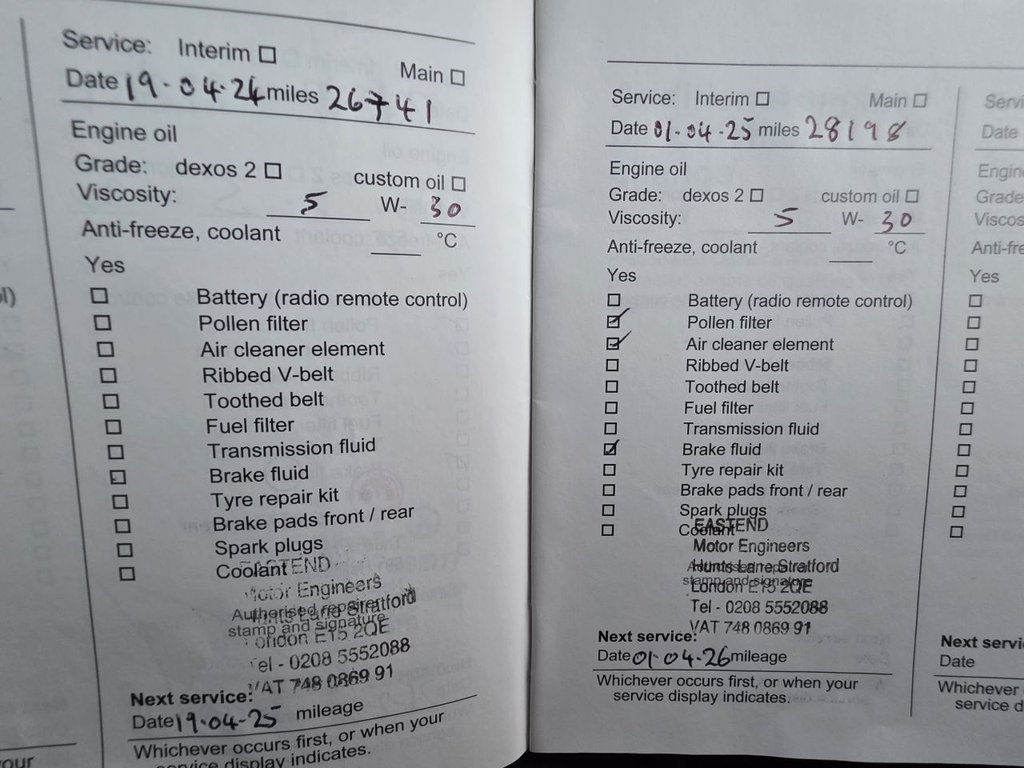 Service: Interim ☐ Main ☐
Date 19.04.24 miles 26741
Engine oil
Grade: dexos 2 ☐ custom oil ☐
Viscosity: 5 W- 30
Anti-freeze, coolant °C
Yes
☐ Battery (radio remote control)
☐ Pollen filter
☐ Air cleaner element
☐ Ribbed V-belt
☐ Toothed belt
☐ Fuel filter
☐ Transmission fluid
☐ Brake fluid
☐ Tyre repair kit
☐ Brake pads front / rear
☐ Spark plugs
☐ Coolant
EASTEND
Motor Engineers
Authorised repairer
Hunts Lane, Stratford
stamp and signature
London E15 2QE
Tel - 0208 5552088
VAT 748 0869 91
Next service:
Date 19.04-25 mileage
Whichever occurs first, or when your
service display indicates.
Service: Interim ☐ Main ☐
Date 01-04-25 miles 28198
Engine oil
Grade: dexos 2 ☐ custom oil ☐
Viscosity: 5 W- 30
Anti-freeze, coolant °C
Yes
☐ Battery (radio remote control)
☑ Pollen filter
☑ Air cleaner element
☐ Ribbed V-belt
☐ Toothed belt
☐ Fuel filter
☐ Transmission fluid
☑ Brake fluid
☐ Tyre repair kit
☐ Brake pads front / rear
☐ Spark plugs
☐ Coolant
EASTEND
Motor Engineers
Hunts Lane, Stratford
Authorised repairer
stamp and signature
London E15 2QE
Tel - 0208 5552088
VAT 748 0869 91
Next service:
Date 01.04.26 mileage
Whichever occurs first, or when your
service display indicates.
Servi
Date
Engin
Grade
Viscos
Anti-fre
Yes
Next servi
Date
Whichever
service d